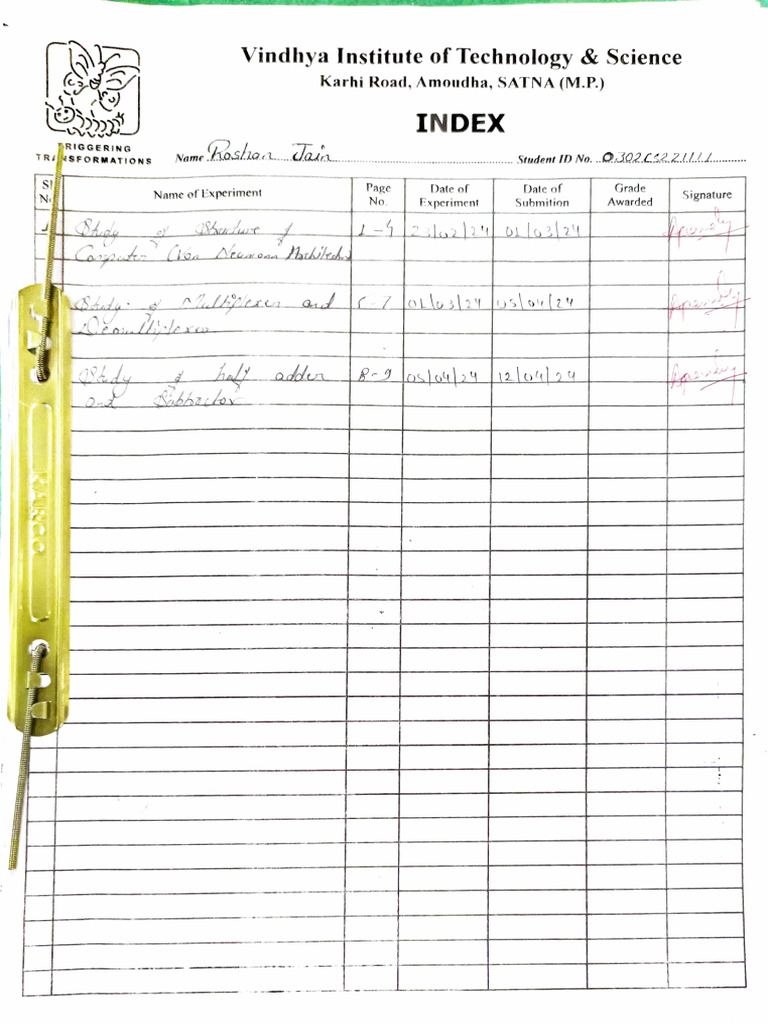 Vindhya Institute of Technology & Science
Karhi Road, Amoudha, SATNA (M.P.)
INDEX
TRIGGERING
TRANSFORMATIONS
Name Roshan Jain Student ID No. 0302CS221111
Name of Experiment Page No. Date of Experiment Date of Submition Grade Awarded Signature
Study of Structure of 1-4 23/02/24 01/03/24
Computer (Von Neumann
Study of Multiplexer and 01/03/24 05/04/24
Demultiplexer
Study of half adder 8-9 05/04/24 12/04/24
and Subtractor
KANCO